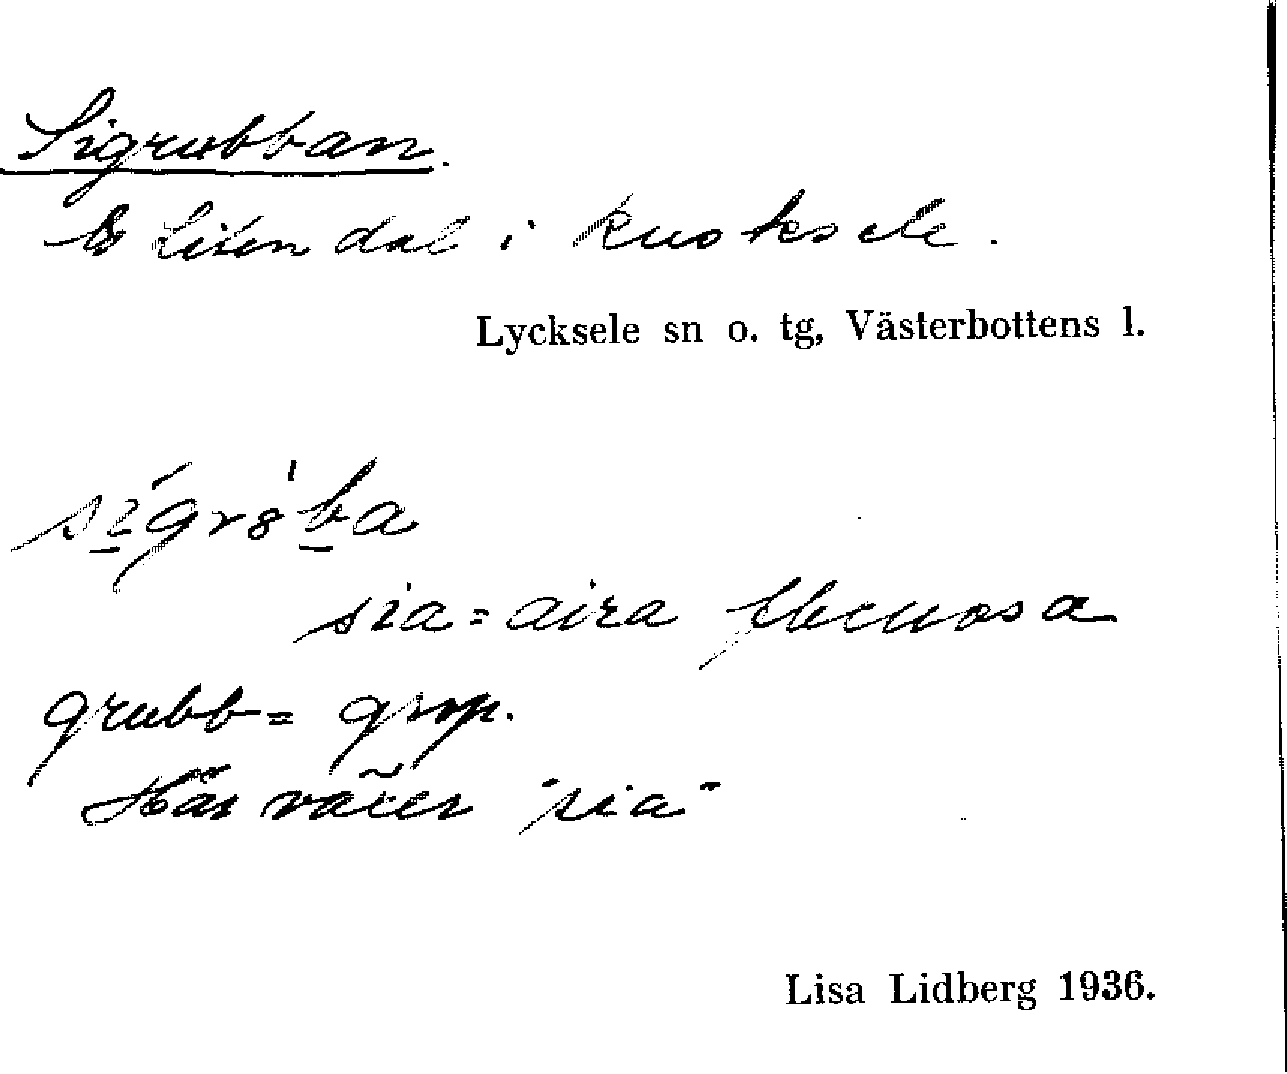 Sigrubban.
Liten dal i Kuoksele.
Lycksele sn o. tg, Västerbottens l.
sia = aira flexuosa
grubb = grop.
Här växer "sia"
Lisa Lidberg 1936.